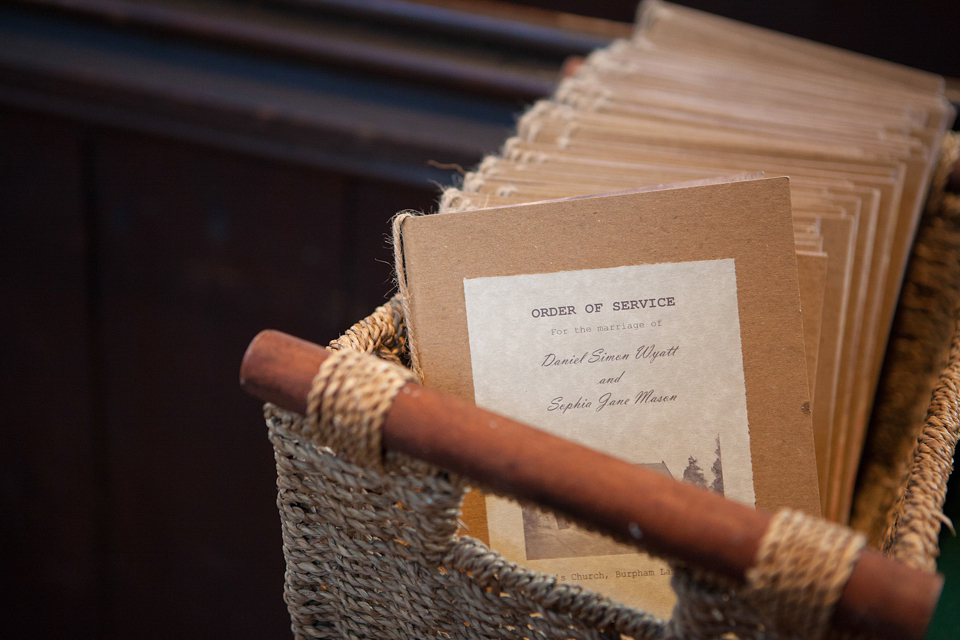 ORDER OF SERVICE
For the marriage of
Daniel Simon Wyatt
and
Sophia Jane Mason
's Church, Burpham La